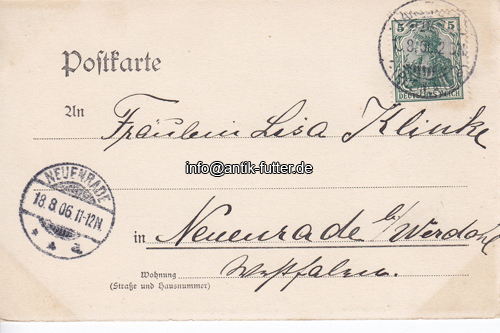 Postkarte
5 5
DEUTSCHES REICH
An
Fräulein Lisa Klinke
info@antik-futter.de
NEUENRADE
18.8.06.11-12N.
* * a
in Neuenrade b/ Werdohl
Westfalen.
Wohnung
(Straße und Hausnummer)